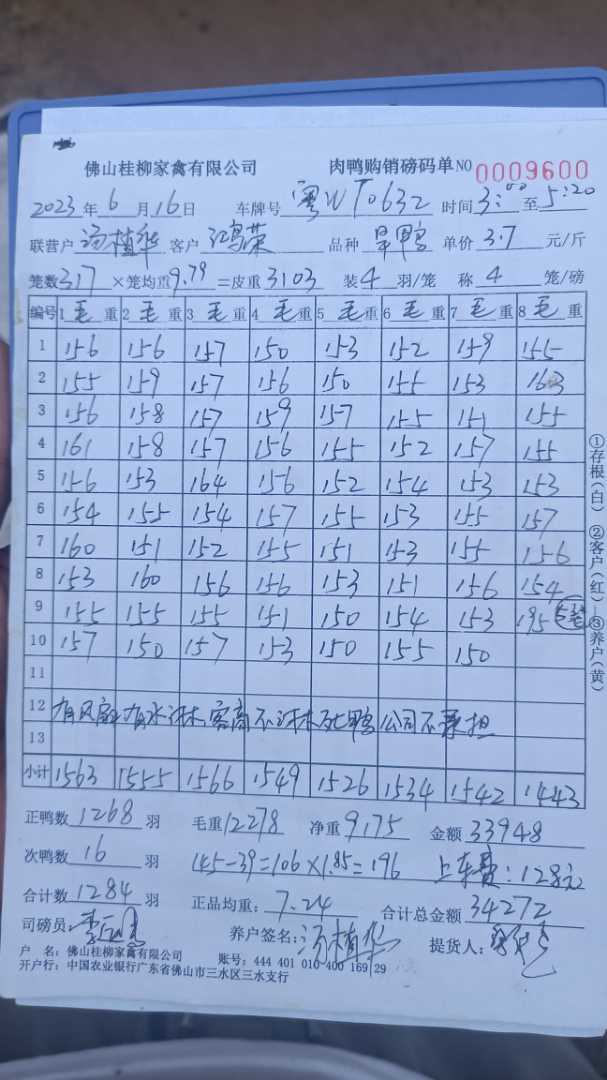 佛山桂柳家禽有限公司 肉鸭购销磅码单 NO 0009600
2023年6月16日 车牌号 粤WT0632 时间 3:00 至 5:20
联营户 汤植华 客户 江鸟荣 品种 旱鸭 单价 3.7 元/斤
笼数 317 ×笼均重 9.79 =皮重 3103 装 4 羽/笼 称 4 笼/磅
编号 1 毛 重 2 毛 重 3 毛 重 4 毛 重 5 毛 重 6 毛 重 7 毛 重 8 毛 重
1 156 156 157 150 153 152 159 155
2 155 159 157 156 150 155 153 163
3 156 158 157 159 157 155 151 155
4 161 158 157 156 155 152 157 155
5 156 153 164 156 152 154 153 153
6 154 155 154 157 155 153 155 157
7 160 151 152 155 151 153 155 156
8 153 160 156 156 153 151 156 154
9 155 155 155 151 150 154 153 195
10 157 150 157 153 150 155 150
11
12 有风扇有水淋 客商不淋死鸭公司不承担
13
小计 1563 1555 1566 1549 1526 1534 1542 1443
正鸭数 1268 羽 毛重 12278 净重 9175 金额 33948
次鸭数 16 羽 145-39=106×1.85=196 上车费:128元
合计数 1284 羽 正品均重: 7.24 合计总金额 34272
司磅员: 养户签名: 汤植华 提货人:
户 名: 佛山桂柳家禽有限公司 账号: 444 401 010 400 169 29
开户行: 中国农业银行广东省佛山市三水区三水支行
①存根(白) ②客户(红) ③养户(黄)